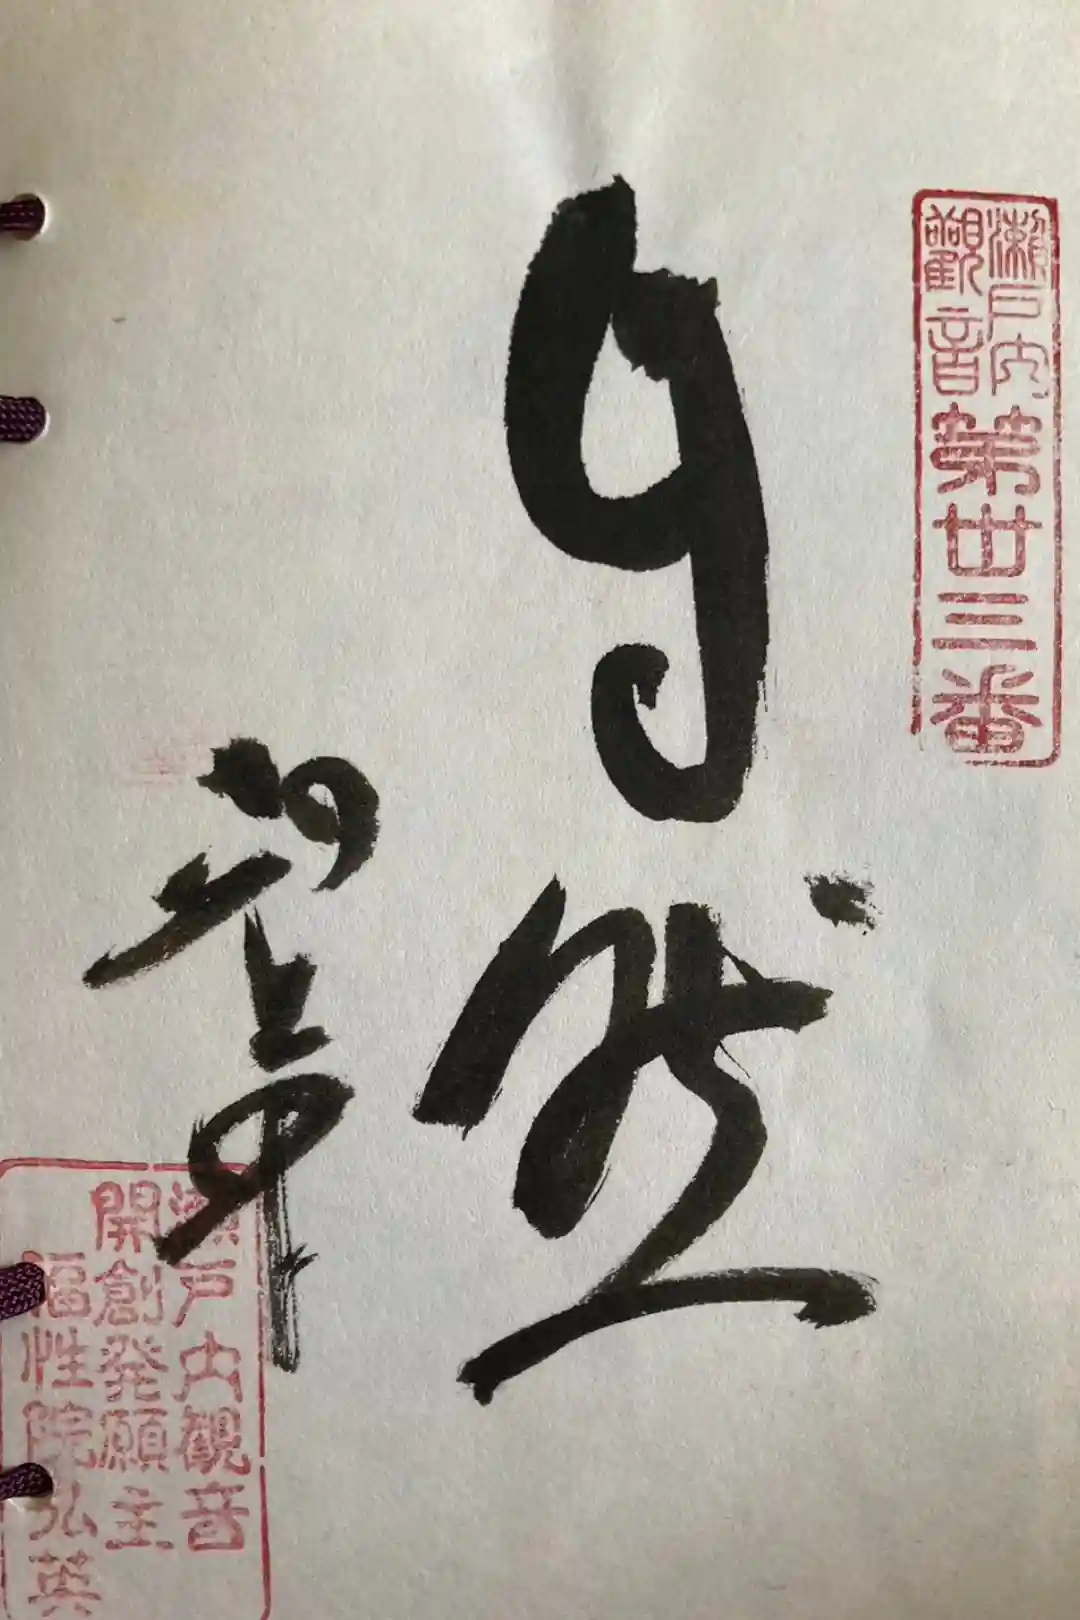 瀬戸内
觀音
第丗三番
自然
瀬戸内観音
開創発願主
福性院弘英